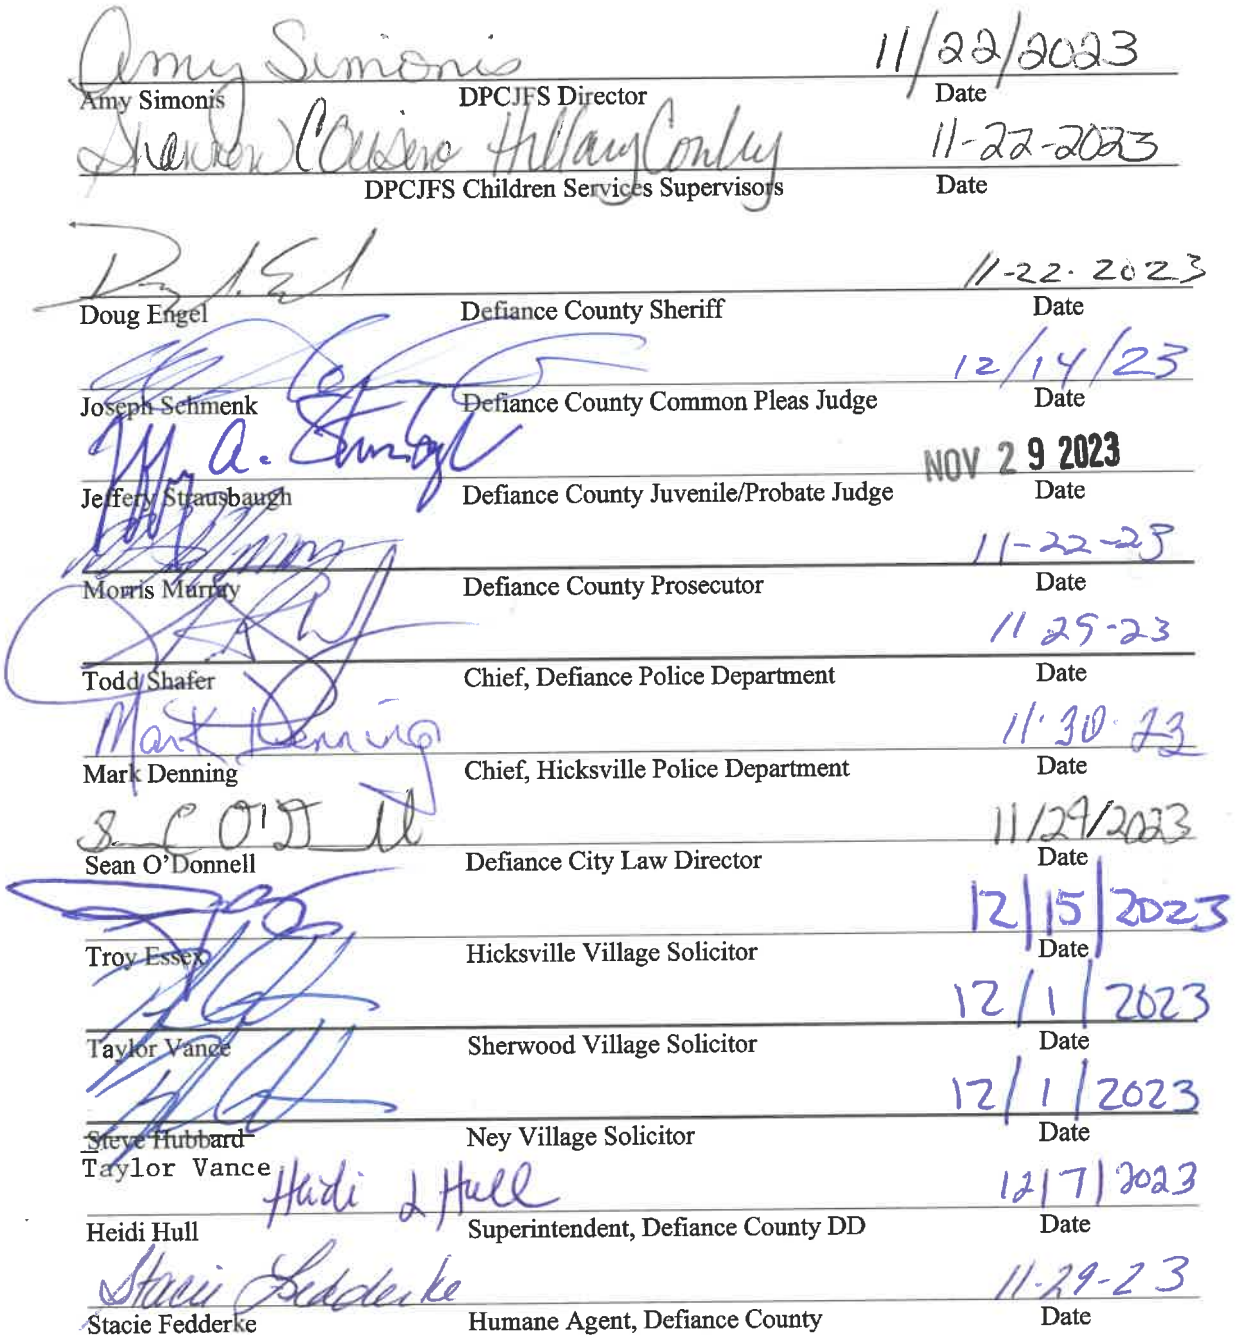 Amy Simonis 11/22/2023
Amy Simonis DPCJFS Director Date
Shannon Cousino Hillary Conley 11-22-2023
DPCJFS Children Services Supervisors Date
11-22-2023
Doug Engel Defiance County Sheriff Date
12/14/23
Joseph Schmenk Defiance County Common Pleas Judge Date
A. NOV 29 2023
Jeffery Strausbaugh Defiance County Juvenile/Probate Judge Date
11-22-23
Morris Murray Defiance County Prosecutor Date
11-29-23
Todd Shafer Chief, Defiance Police Department Date
Mark Denning 11-30-23
Mark Denning Chief, Hicksville Police Department Date
S C O'D ll 11/29/2023
Sean O'Donnell Defiance City Law Director Date
12/15/2023
Troy Essex Hicksville Village Solicitor Date
12/1/2023
Taylor Vance Sherwood Village Solicitor Date
12/1/2023
Steve Hubbard Ney Village Solicitor Date
Taylor Vance
Heidi L Hull 12/7/2023
Heidi Hull Superintendent, Defiance County DD Date
Stacie Fedderke 11-29-23
Stacie Fedderke Humane Agent, Defiance County Date